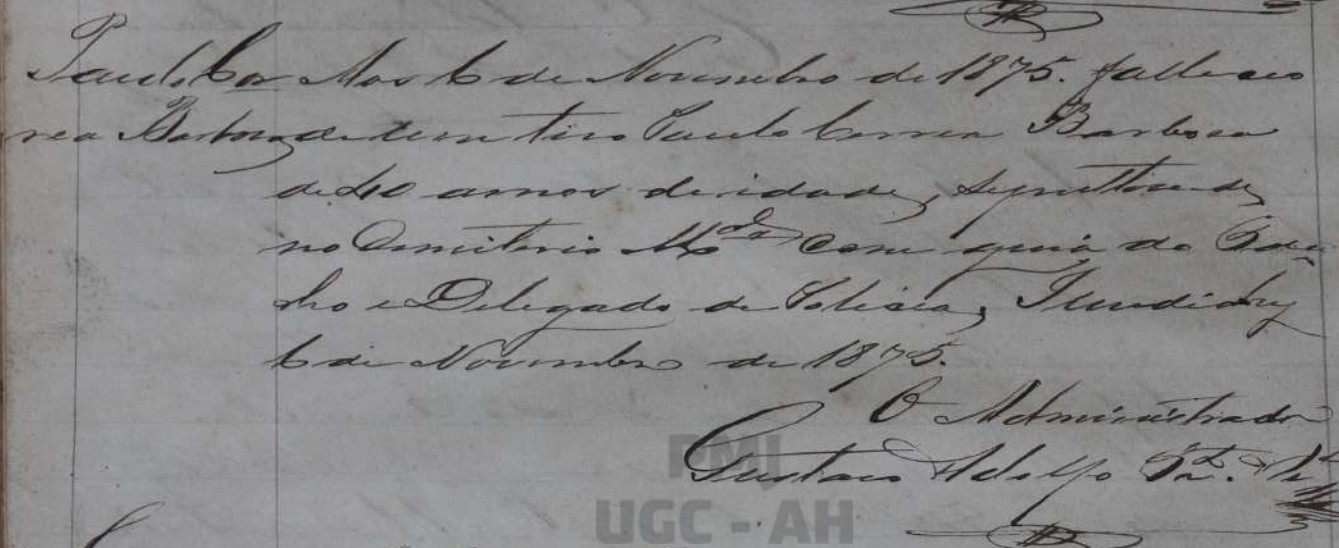 Paulo Cor Aos 6 de Novembro de 1875. falleceo
rea Barboza de um tiro Paulo Correa Barbosa
de 40 annos de idade, sepultouse
no Cemiterio M.al com guia do
e Delegado de Policia, Jundiahy
6 de Novembro de 1875.
O Administrador
Gustavo Adolfo
PMJ
UGC - AH